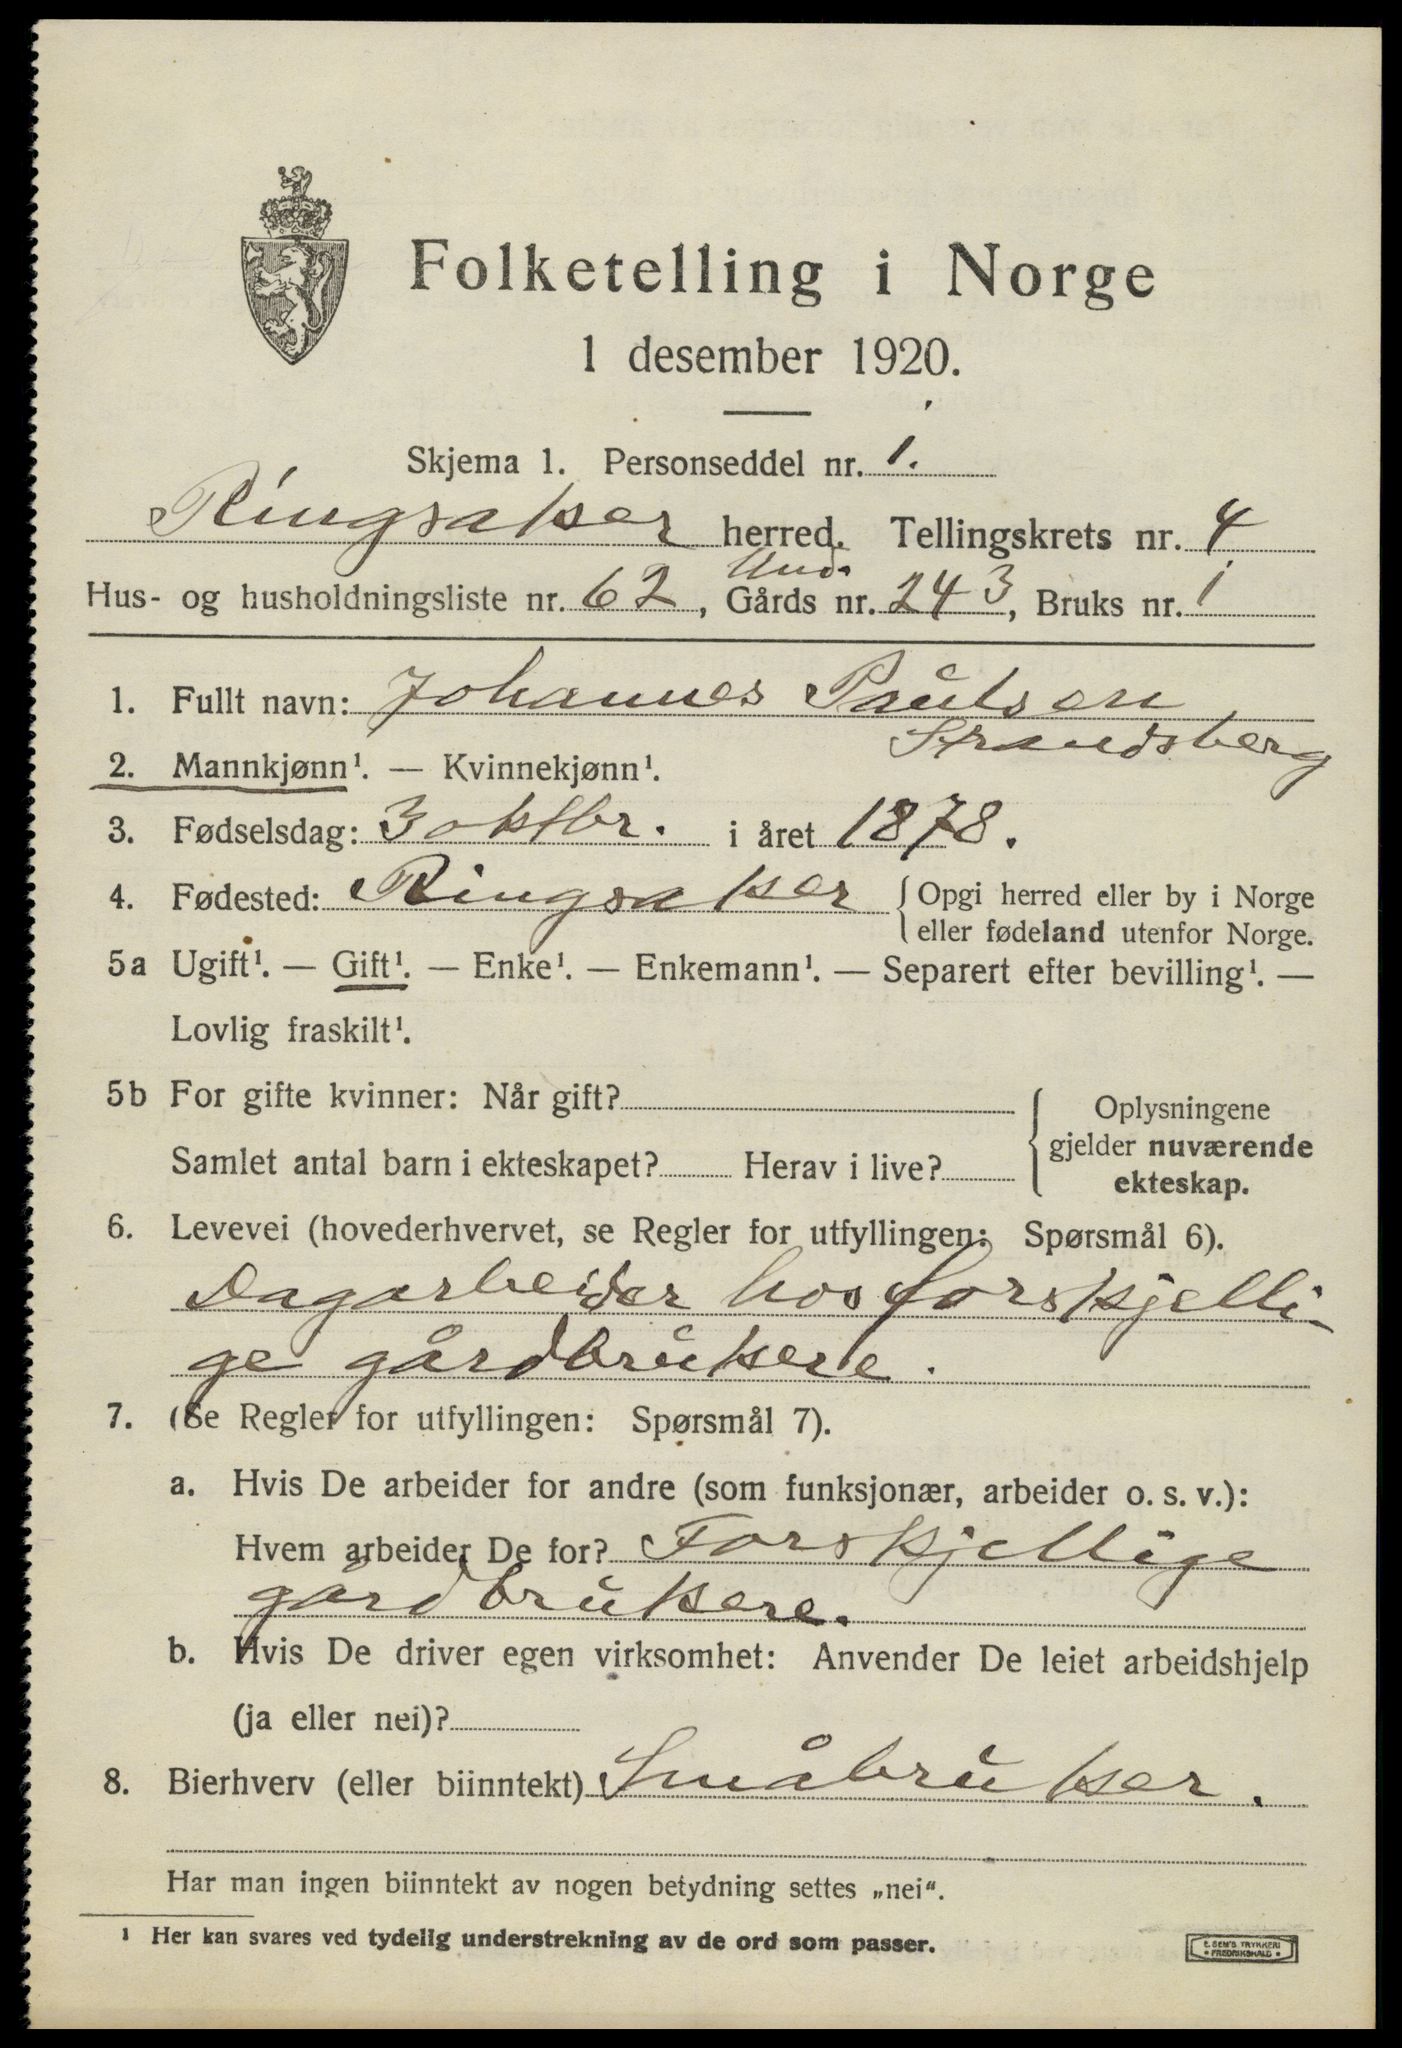 Folketelling i Norge
1 desember 1920.
Skjema 1. Personseddel nr. 1.
Ringsaker herred. Tellingskrets nr. 4
Und.
Hus- og husholdningsliste nr. 62, Gårds nr. 243, Bruks nr. 1
1. Fullt navn: Johannes Paulsen
Strandsberg
2. Mannkjønn¹. — Kvinnekjønn¹.
3. Fødselsdag: 3 oktbr. i året 1878.
4. Fødested: Ringsaker { Opgi herred eller by i Norge
eller fødeland utenfor Norge.
5a Ugift¹. — Gift¹. — Enke¹. — Enkemann¹. — Separert efter bevilling¹. —
Lovlig fraskilt¹.
5b For gifte kvinner: Når gift? { Oplysningene
gjelder nuværende
Samlet antal barn i ekteskapet? Herav i live?
ekteskap.
6. Levevei (hovederhvervet, se Regler for utfyllingen: Spørsmål 6).
Dagarbeider hos forskjelli-
ge gårdbrukere.
7. (Se Regler for utfyllingen: Spørsmål 7).
a. Hvis De arbeider for andre (som funksjonær, arbeider o. s. v.):
Hvem arbeider De for? Forskjellige
gårdbrukere.
b. Hvis De driver egen virksomhet: Anvender De leiet arbeidshjelp
(ja eller nei)?
8. Bierhverv (eller biinntekt) Småbruker.
Har man ingen biinntekt av nogen betydning settes „nei“.
¹ Her kan svares ved tydelig understrekning av de ord som passer.
E. SEM'S TRYKKERI
• FREDRIKSHALD •